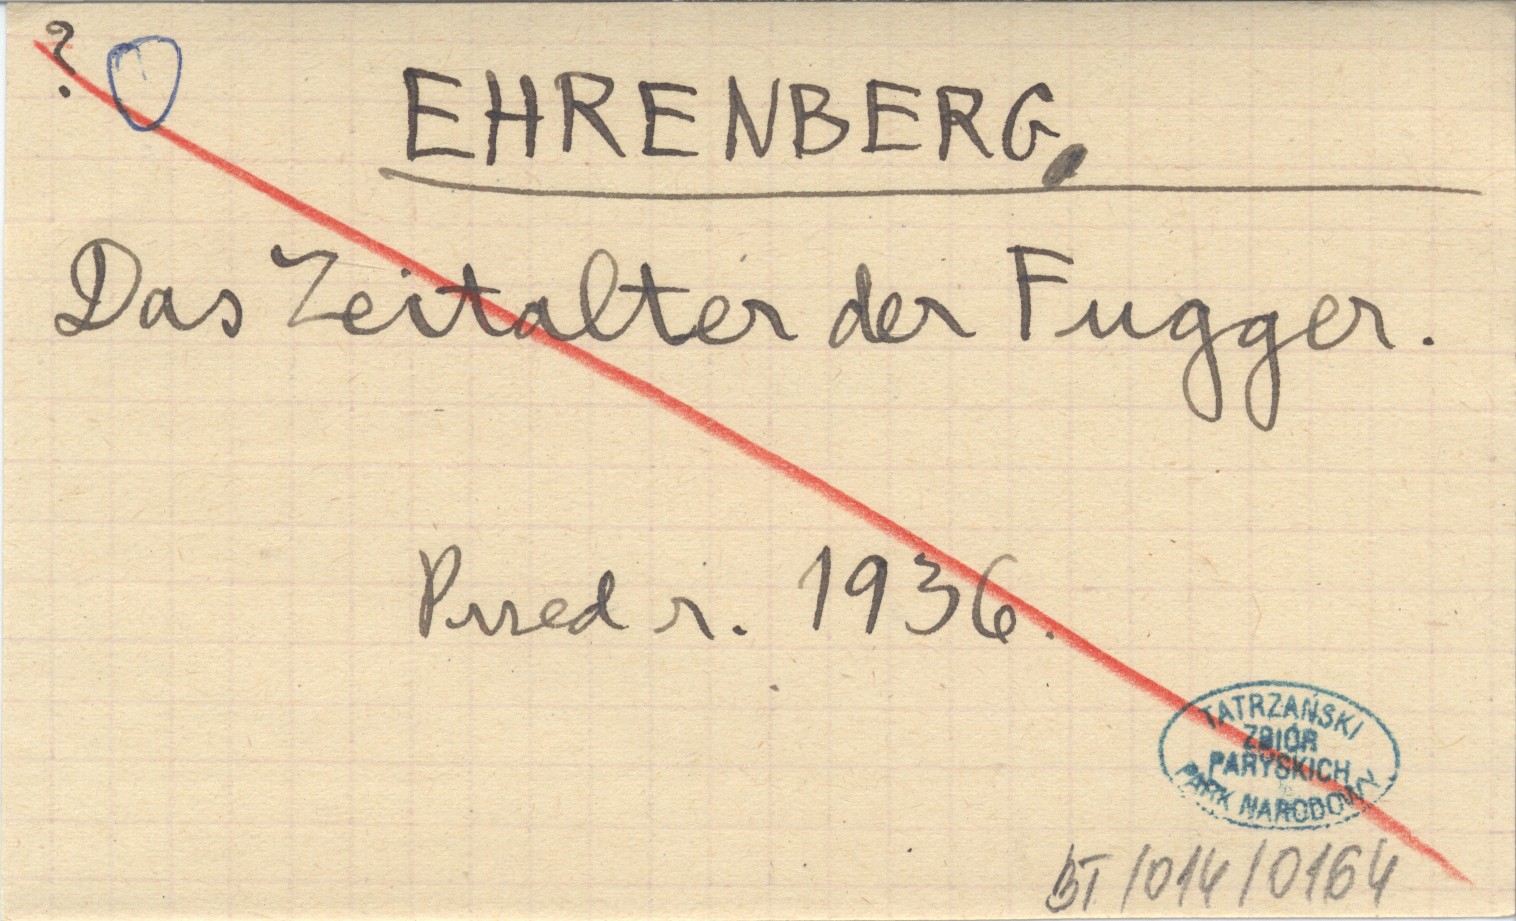 ?
EHRENBERG.
Das Zeitalter der Fugger.
Przed r. 1936.
TATRZAŃSKI
ZBIÓR
PARYSKICH
PARK NARODOWY
BT/014/0164